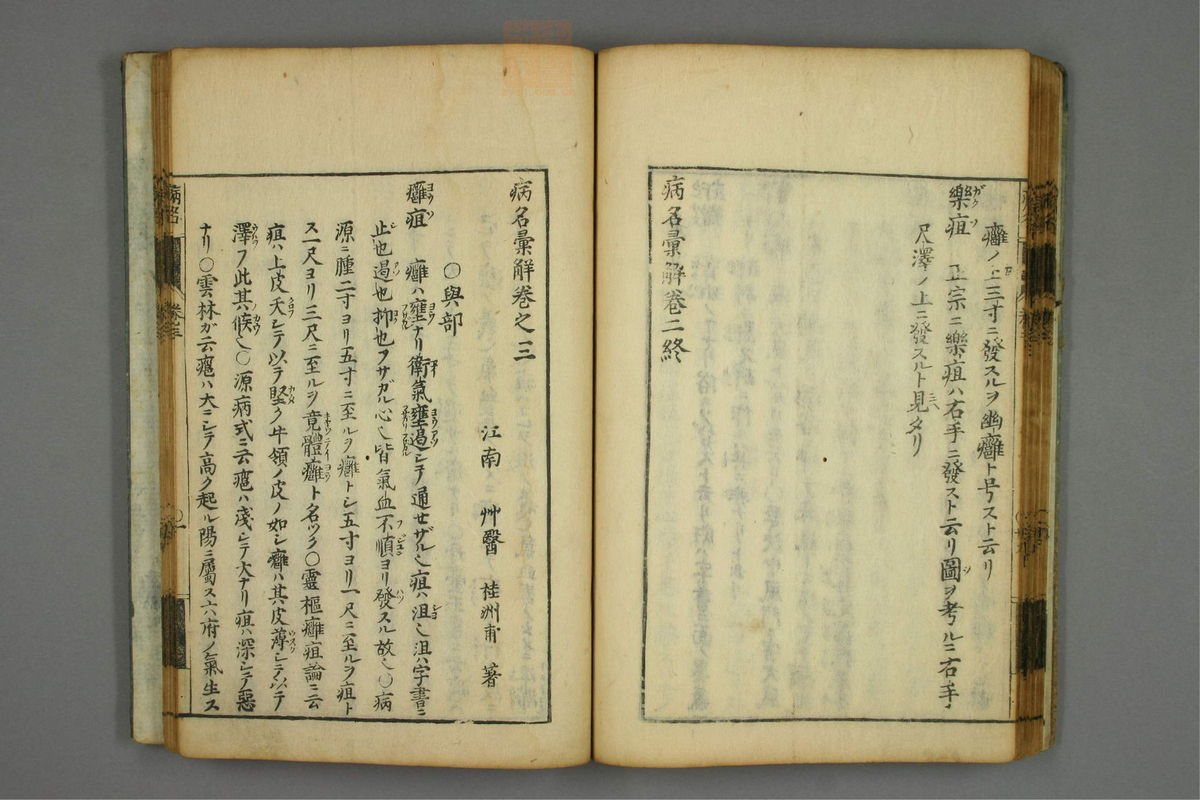 癰ノ上三寸ニ發スルヲ幽癰ト号スト云リ
樂疽 正宗ニ樂疽ハ右手ニ發スト云リ圖ヲ考ルニ右手ノ
尺澤ノ上ニ發スルト見ヘタリ
病名彙解卷二終
病名彙解卷之三
江南 艸醫 桂洲甫 著
○與部
癰疽 癰ハ壅ナリ衛氣壅遏シテ通セザル也疽ハ沮也沮ハ字書ニ
止也遏也抑也フサガル心也皆氣血不順ヨリ發スル故也○病
源ニ腫二寸ヨリ五寸ニ至ルヲ癰トシ五寸ヨリ一尺ニ至ルヲ疽ト
ス一尺ヨリ三尺ニ至ルヲ竟體癰ト名ヅク○靈樞癰疽論ニ云
疽ハ上皮夭シテ以テ堅ク牛領ノ皮ノ如シ癰ハ其皮薄シテ以テ
澤フ此其候也○源病式ニ云癰ハ淺シテ大ナリ疽ハ深シテ惡
ナリ○雲林ガ云癰ハ大ニシテ高ク起ル陽ニ屬ス六府ノ氣生ス